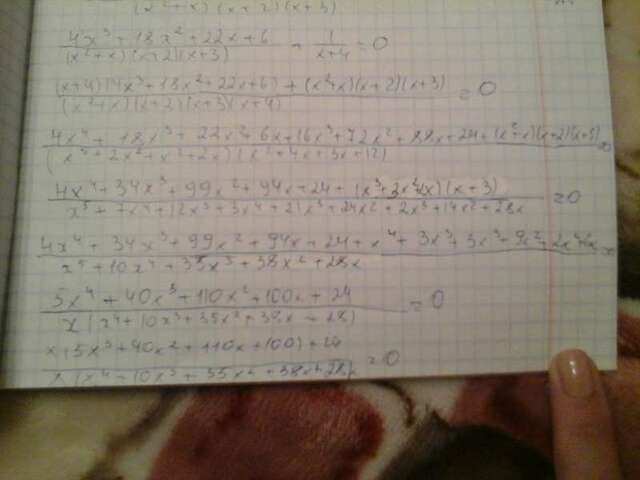 (x²+x)(x+2)(x+3)
4x³+18x²+22x+6 / (x²+x)(x+2)(x+3) + 1/(x+4) = 0
(x+4)(4x³+18x²+22x+6)+(x²+x)(x+2)(x+3) / (x²+x)(x+2)(x+3)(x+4) = 0
4x⁴+18x³+22x²+6x+16x³+72x²+88x+24+(x²+x)(x+2)(x+3) / (x³+2x²+x²+2x)(x²+4x+3x+12) =0
4x⁴+34x³+99x²+94x+24+(x³+3x²+2x)(x+3) / x⁵+7x⁴+12x³+3x⁴+21x³+24x²+2x³+14x²+28x =0
4x⁴+34x³+99x²+94x+24+x⁴+3x³+3x³+9x²+2x²+6x / x⁵+10x⁴+35x³+38x²+28x =0
5x⁴+40x³+110x²+100x+24 / x(x⁴+10x³+35x²+38x+28) = 0
x(5x³+40x²+110x+100)+24 / x(x⁴+10x³+35x²+38x+28) =0